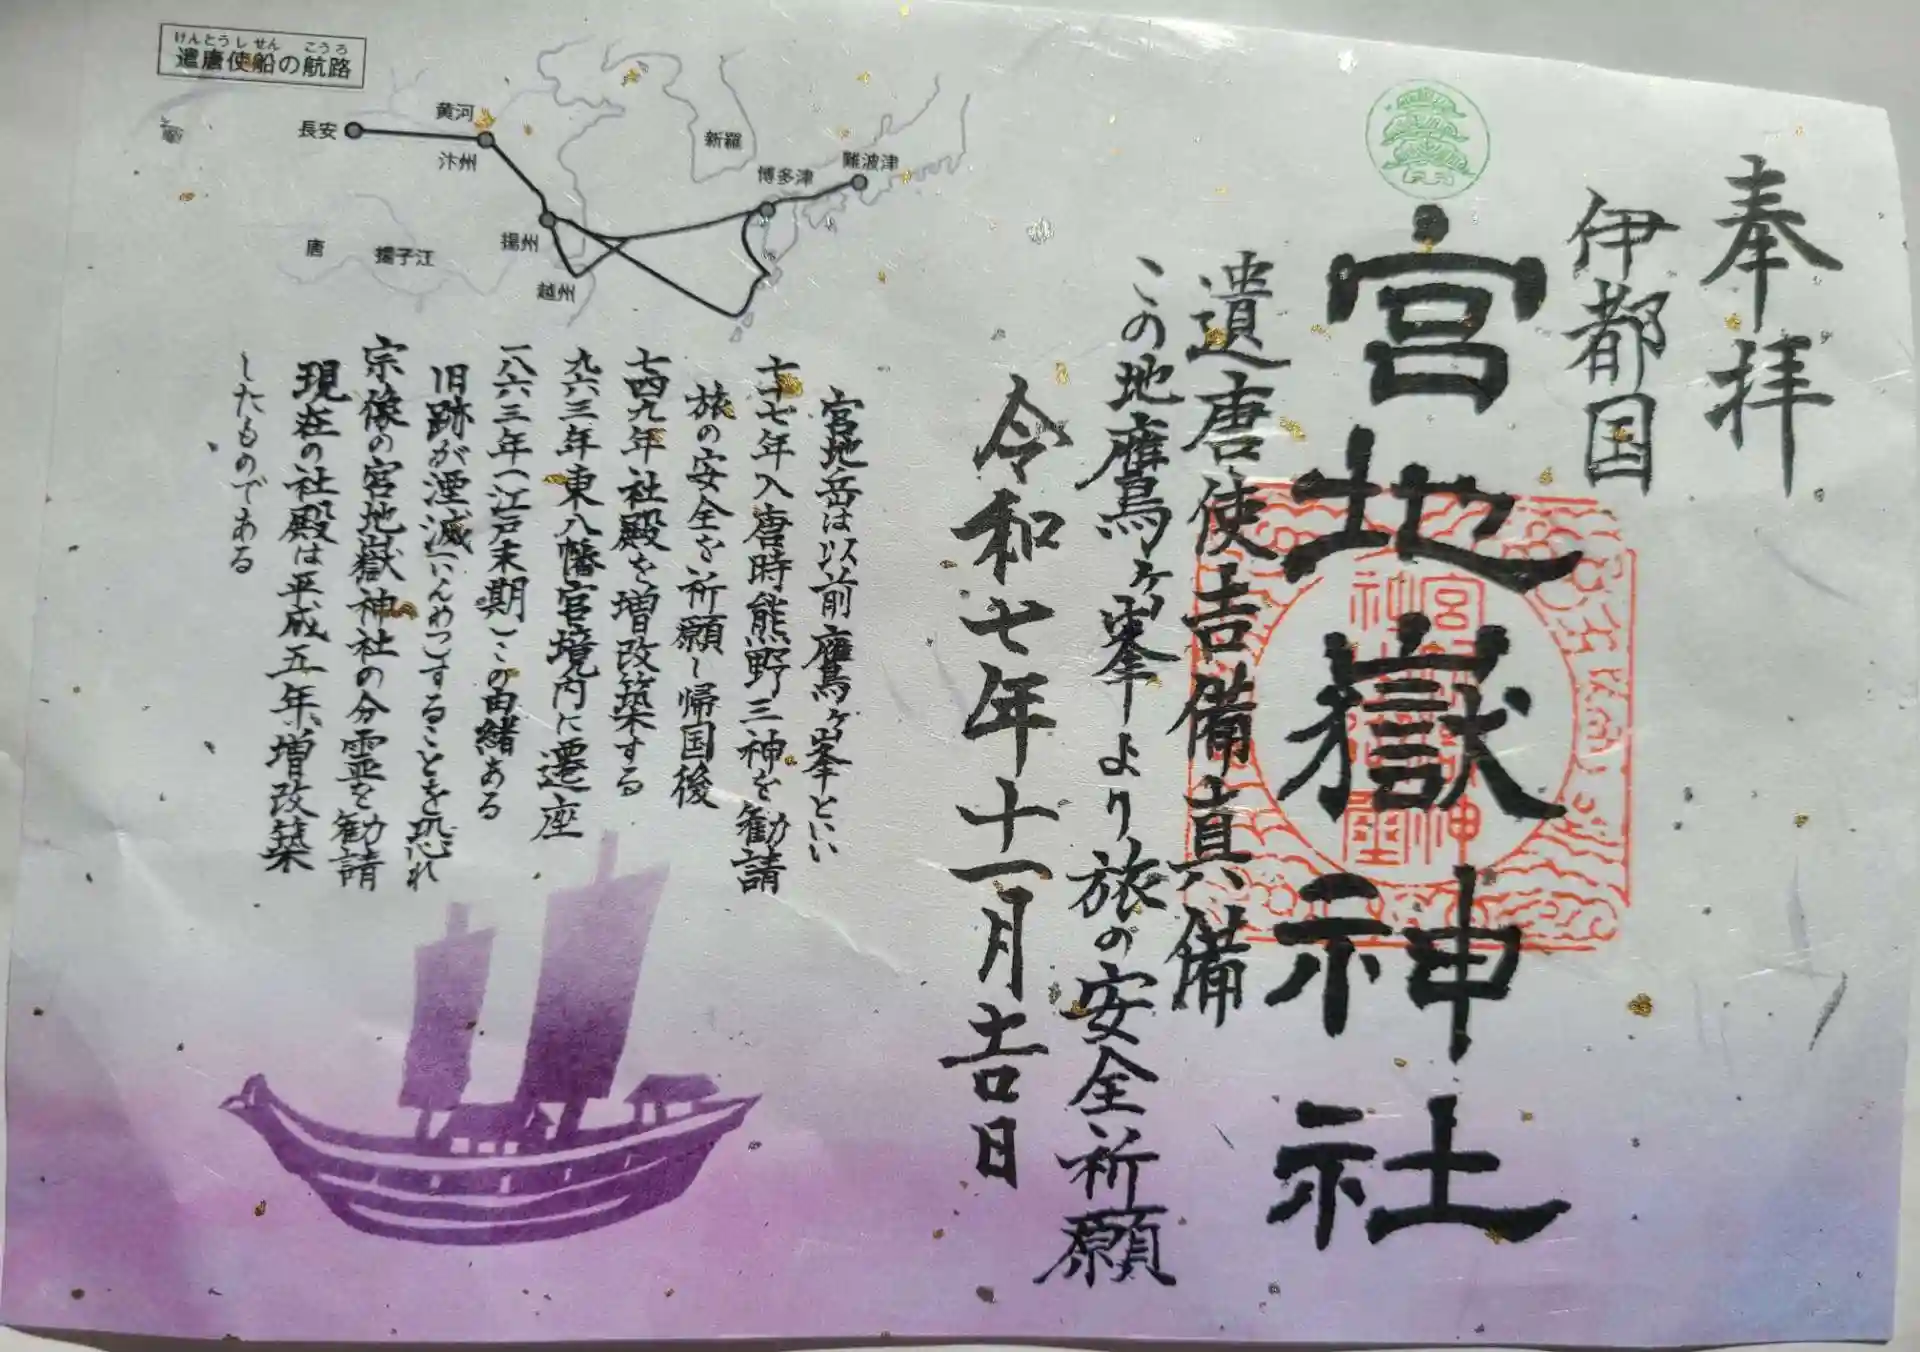 奉拝
伊都国
宮地嶽神社
遺唐使吉備真備
この地鷹ヶ峯より旅の安全祈願
令和七年十一月吉日
宮地岳は以前鷹ヶ峯といい
七一七年入唐時熊野三神を勧請
旅の安全を祈願し帰国後
七四九年社殿を増改築する
九六三年東八幡宮境内に遷座
一八六三年(江戸末期)この由緒ある
旧跡が湮滅(いんめつ)することを恐れ
宗像の宮地嶽神社の分霊を勧請
現在の社殿は平成五年、増改築
したものである
けんとうしせん こうろ
遣唐使船の航路
長安
黄河
汴州
揚州
越州
唐
揚子江
新羅
博多津
難波津